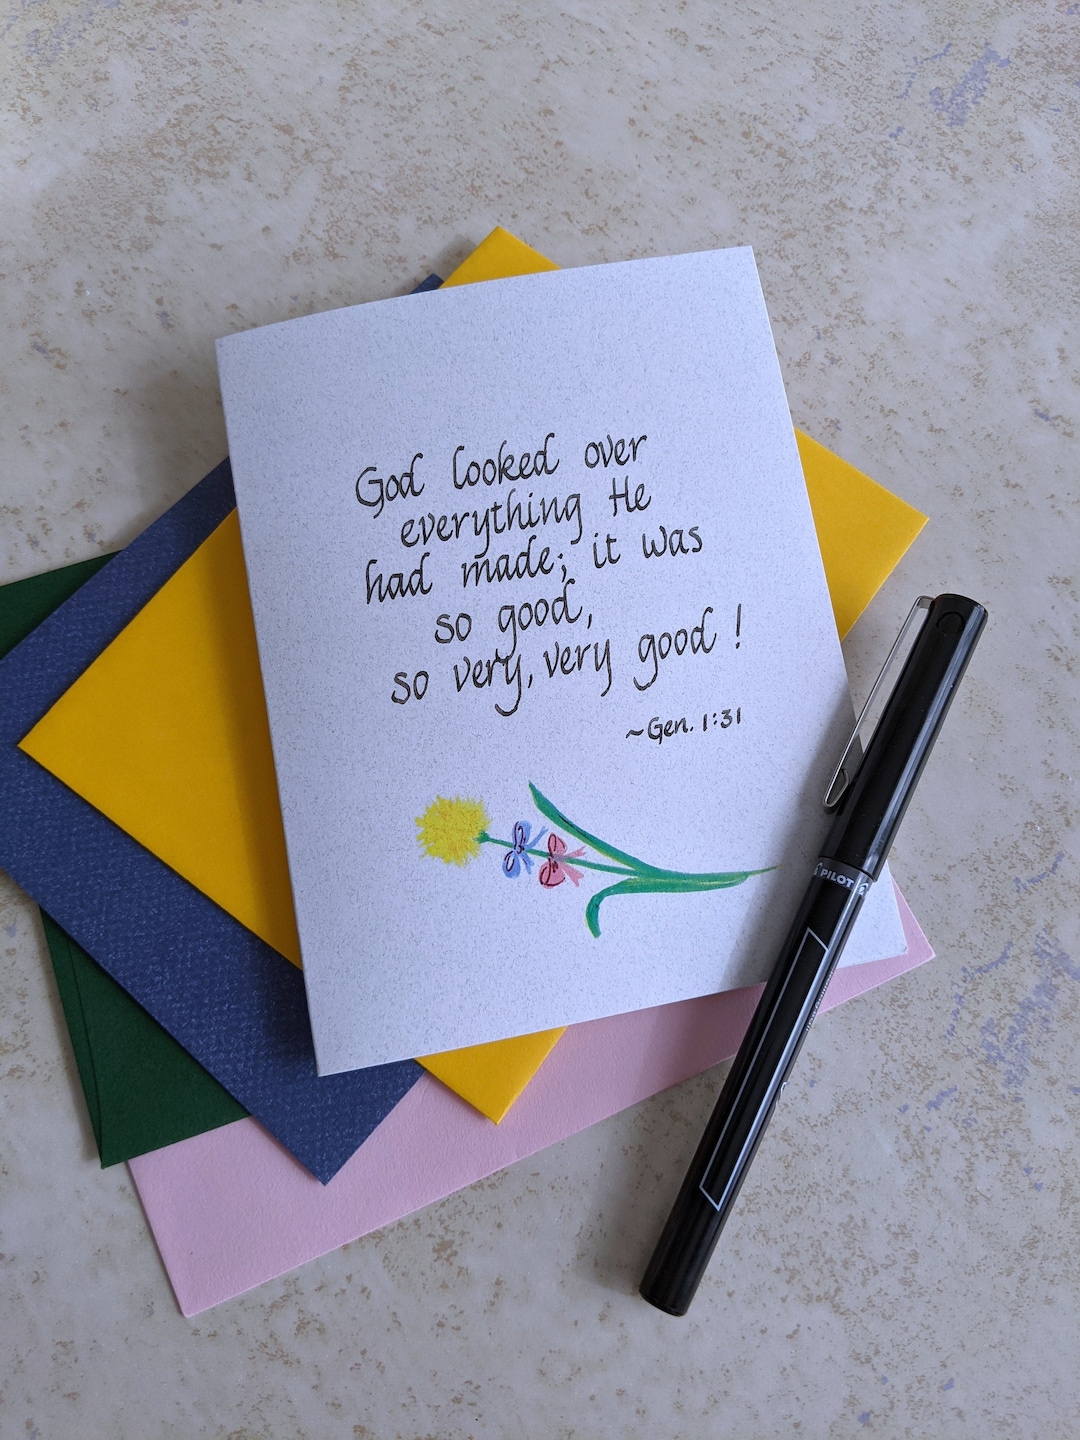 God looked over
everything He
had made; it was
so good,
so very, very good!
~Gen. 1:31
PILOT